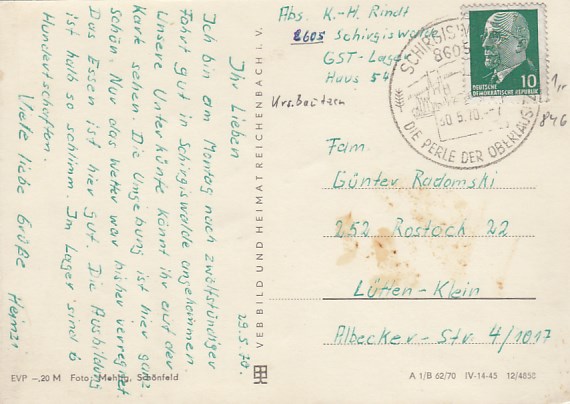 29.5.70.
Ihr Lieben
Ich bin am Montag nach zwölfstündiger
Fahrt gut in Schirgiswalde angekommen.
Unsere Unterkünte könnt ihr auf der
Karte sehen. Die Umgebung ist hier ganz
schön. Nur das Wetter war bisher verregnet
Das Essen ist hier gut. Die Ausbildung
ist halb so schlimm. Im Lager sind 6
Hundertschaften.
Viele liebe Grüße Heinzi
EVP -,20 M Foto: Mehlig, Schönfeld
VEB BILD UND HEIMAT REICHENBACH I. V.
Abs. K.-H. Rindt
8605 Schirgiswalde
GST-Lager
Haus 54
Krs. Bautzen
8605
30.5.70.-7
DIE PERLE DER OBERLAUSITZ
10
DEUTSCHE
DEMOKRATISCHE REPUBLIK
846
Fam.
Günter Radomski
252 Rostock 22
Lütten-Klein
Albecker-Str. 4/1017
A 1/B 62/70 IV-14-45 12/4858